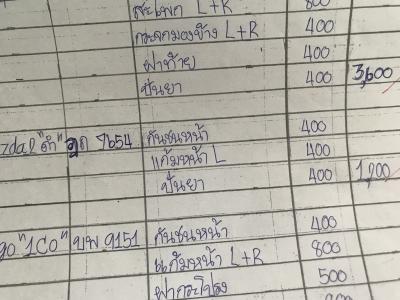 สะโพก L+R 800
กระจกมองข้าง L+R 400
ฝาท้าย 400
ปั่นยา 400 3,600
zda2 "ดำ" 7654 กันชนหน้า 400
แก้มหน้า L 400
ปั่นยา 400 1,200
"1C0" ขพ 9151 กันชนหน้า 400
แก้มหน้า L+R 800
ฝากระโปรง 500